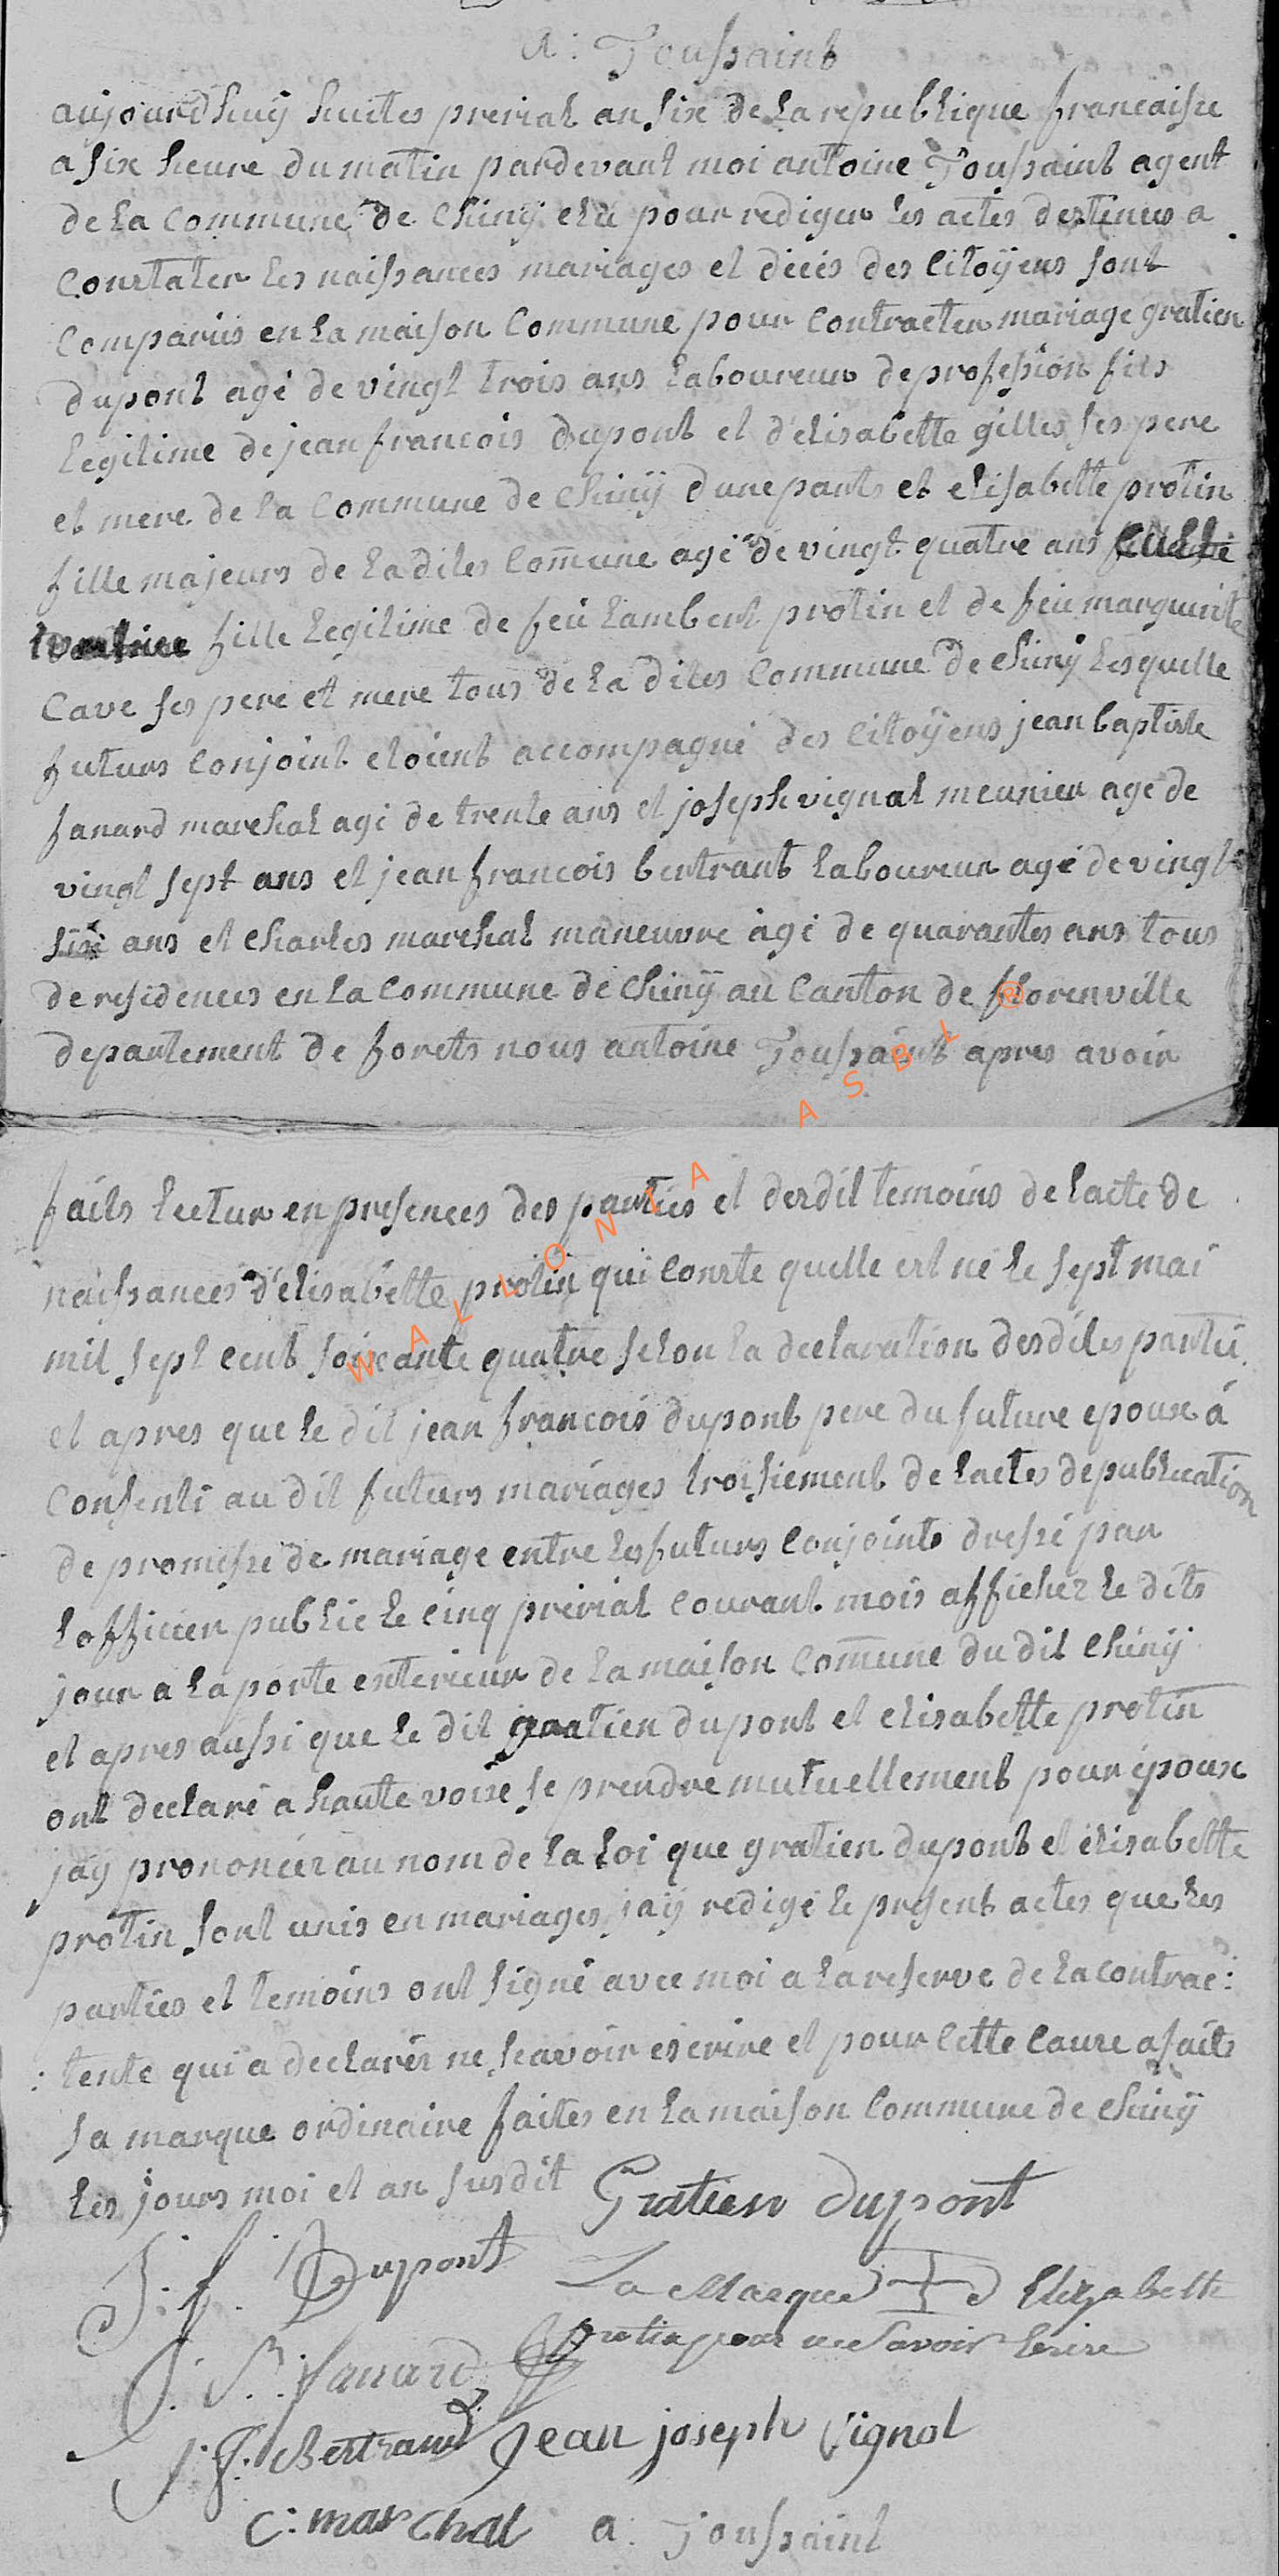 a: Toussaint
aujourdhuÿ huites prerial an six de la republique francaisse
a six heure du matin pardevant moi antoine Toussaint agent
de la commune de Chinÿ elu pour rediger les actes destinees a
constater les naissances mariages et décès des citoÿens sont
comparus en la maison commune pour contracter mariage gratien
dupont agé de vingt trois ans laboureur de profession fils
legitime de jean francois dupont et d'elisabette gilles ses pere
et mere de la commune de Chinÿ dune parts et elisabette protin
fille majeurs de la dites comune agé de vingt quatre ans
fille legitime de feu lambert protin et de feu marguerite
Cave ses pere et mere tous de la dites commune de Chinÿ lesquelle
futurs conjoint etoient accompagné des citoÿens jean baptiste
fanard marchal agé de trente ans et joseph vignol meunier agé de
vingt sept ans et jean francois bertrant laboureur agé de vingt
six ans et charles marchal maneuvre agé de quarantes ans tous
de residences en la commune de Chinÿ au canton de florenville
departement de forets nous antoine Toussaint apres avoir
faits lectur en presences des parties et desdit temoins de lacte de
naissances d'élisabette protin qui conste quelle est né le sept mai
mil sept cent soixante quatre selon la declaration desdites partie
et apres que le dit jean francois dupont pere du future epoux à
consenti au dit futurs mariages troisiement de lactes de publication
de promesse de mariage entre les futurs conjoints dressé par
lofficier public le cinq prerial courant mois afficher le dits
jour a la porte exterieur de la maison comune du dit Chinÿ
et apres aussi que le dit gratien dupont et elisabette protin
ont declaré a haute voixe se prendre mutuellement pour époux
jaÿ prononcer au nom de la loi que gratien dupont et élisabette
protin sont unis en mariages jaÿ redigé le present actes que les
parties et temoins ont signé avec moi a la reserve de la contrac:
: tente qui a declarér ne scavoir escrire et pour cette cause a faits
sa marque ordinaire faites en la maison commune de Chinÿ
les jours moi et an susdit Gratien dupont
J: f. Dupont La Marque d Elizabette
protin pour ne savoir Écrire
J: B: fanard
J: f: Bertrand Jean joseph vignol
C: marchal a: Toussaint
WALLONIA ASBL ®